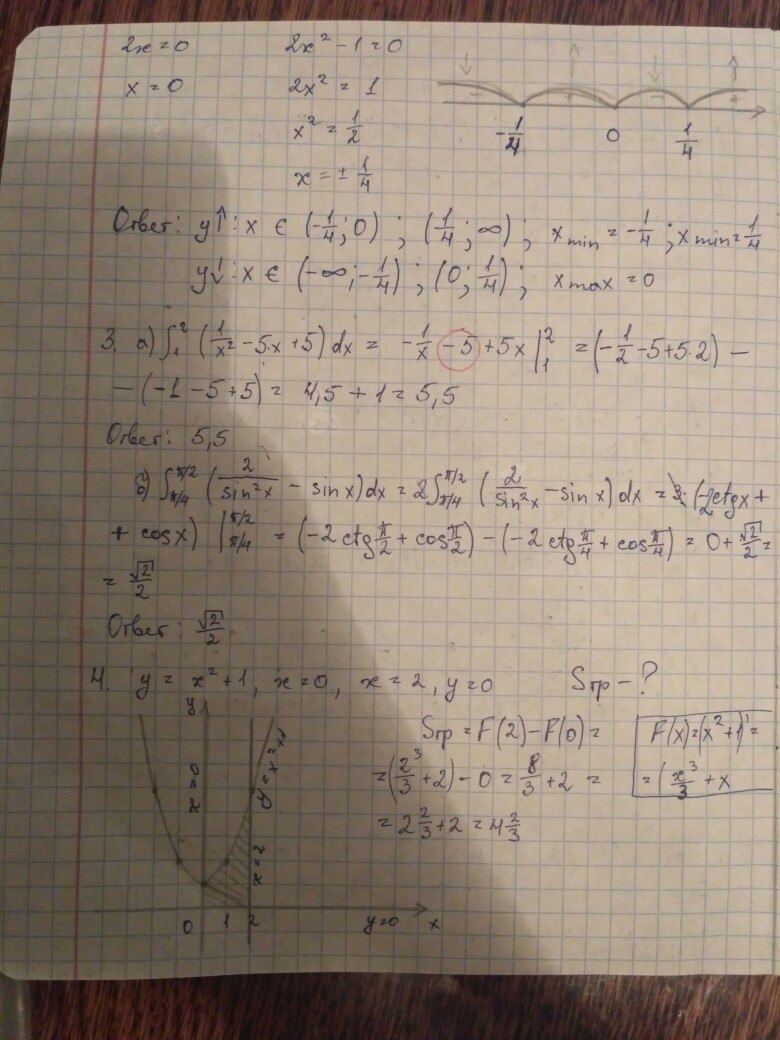 2x = 0
x = 0
2x² - 1 = 0
2x² = 1
x² = 1/2
x = ± 1/4
- + - +
-1/4 0 1/4
Ответ: y↑: x ∈ (-1/4; 0) ; (1/4; ∞) ; x min = -1/4 ; x min = 1/4
y↓: x ∈ (-∞; -1/4) ; (0; 1/4) ; x max = 0
3. а) ∫₁² (1/x² - 5·x + 5) dx = -1/x - 5 + 5x |₁² = (-1/2 - 5 + 5·2) -
- (-1 - 5 + 5) = 4,5 + 1 = 5,5
Ответ: 5,5
б) ∫π/4 π/2 (2/sin²x - sin x) dx = 2∫π/4 π/2 (2/sin²x - sin x) dx = (-2ctgx +
+ cosx) |π/4 π/2 = (-2 ctg π/2 + cos π/2) - (-2 ctg π/4 + cos π/4) = 0 + √2/2 =
= √2/2
Ответ: √2/2
4. y = x² + 1, x = 0, x = 2, y = 0 Sтр - ?
Sтр = F(2) - F(0) =
= (2³/3 + 2) - 0 = 8/3 + 2 =
= 2 2/3 + 2 = 4 2/3
F(x) = (x² + 1)' =
= (x³/3 + x
y
x = 0
y = x² + 1
x = 2
0 1 2 y = 0 x